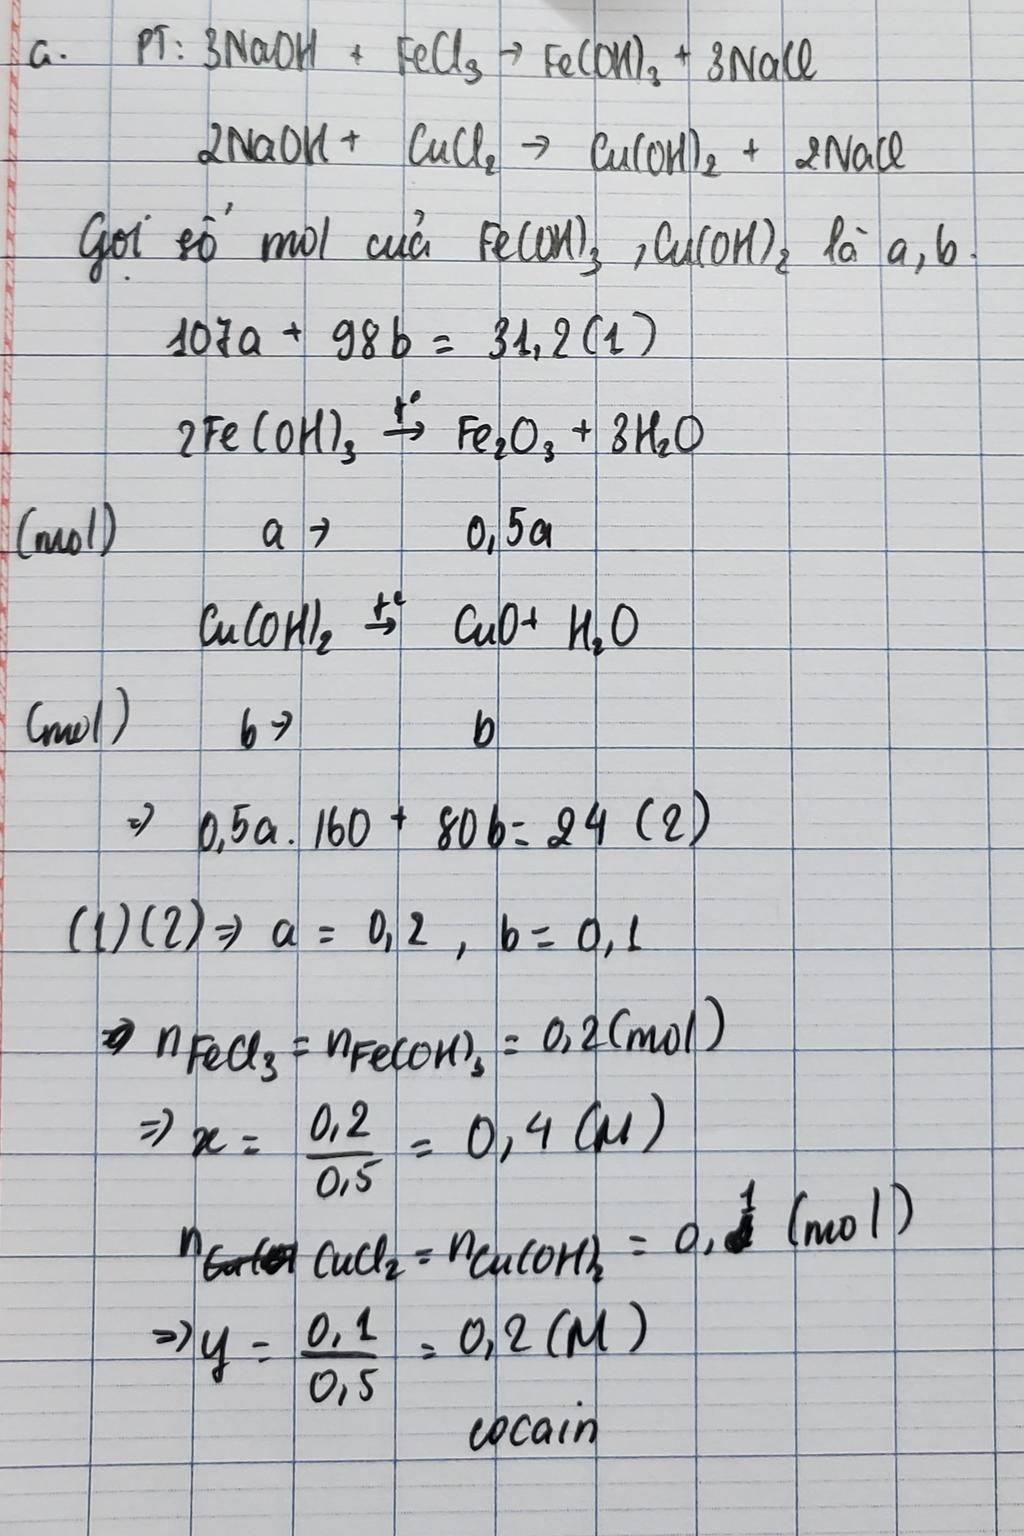 a. PT: 3NaOH + FeCl₃ → Fe(OH)₃ + 3NaCl
2NaOH + CuCl₂ → Cu(OH)₂ + 2NaCl
Gọi số mol của Fe(OH)₃, Cu(OH)₂ là a, b.
107a + 98b = 31,2 (1)
2Fe(OH)₃ →(t°) Fe₂O₃ + 3H₂O
(mol) a → 0,5a
Cu(OH)₂ →(t°) CuO + H₂O
(mol) b → b
⇒ 0,5a . 160 + 80b = 24 (2)
(1)(2) ⇒ a = 0,2 , b = 0,1
⇒ nFeCl₃ = nFe(OH)₃ = 0,2 (mol)
⇒ x = 0,2/0,5 = 0,4 (M)
nCuCl₂ = nCu(OH)₂ = 0,1 (mol)
⇒ y = 0,1/0,5 = 0,2 (M)
cocain